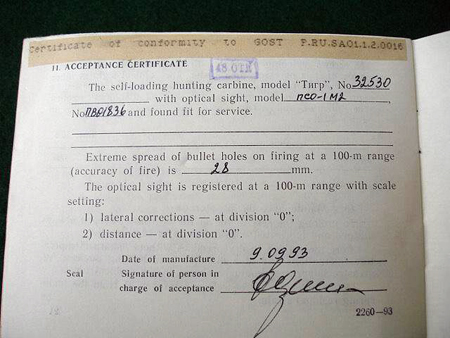 Certificate of conformity to GOST P.RU.SA01.1.2.0016
48 ОТК
11. ACCEPTANCE CERTIFICATE
The self-loading hunting carbine, model "Тигр", No 32530
with optical sight, model ПСО-1М2,
No ПВ01836 and found fit for service.
Extreme spread of bullet holes on firing at a 100-m range
(accuracy of fire) is 28 mm.
The optical sight is registered at a 100-m range with scale
setting:
1) lateral corrections — at division "0";
2) distance — at division "0".
Date of manufacture 9.09.93
Seal Signature of person in
charge of acceptance
2260—93